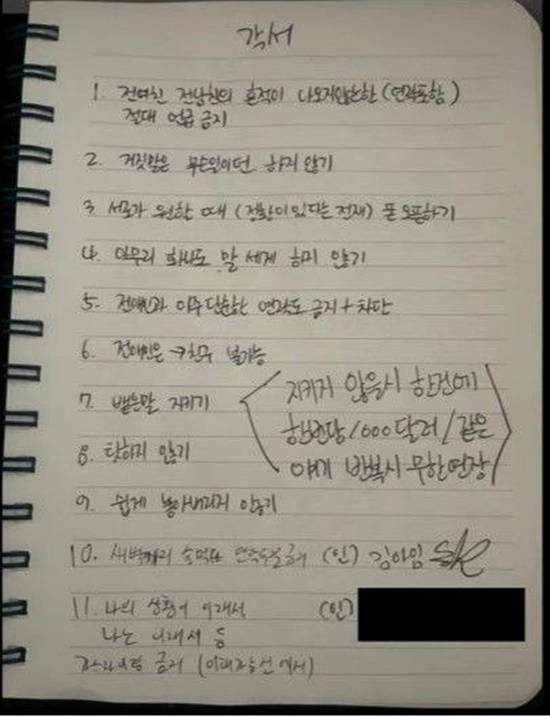 각서
1. 전여친 전남친의 흔적이 나오지않는한 (연락포함)
절대 언급 금지
2. 거짓말은 무슨일이던 하지 않기
3. 서로가 원할 때 (정황이 있다는 전제) 폰 오픈하기
4. 아무리 화나도 말 세게 하지 않기
5. 전애인과 아주 단순한 연락도 금지 + 차단
6. 전애인은 → 친구 불가능
7. 뱉은말 지키기
8. 탓하지 않기
지키지 않을시 한건에
한번당 1000달러 / 같은
얘기 반복시 무한연장
9. 쉽게 놓아버리지 않기
10. 새벽까지 술먹고 연락두절 금지 (인) 김아임
11. 나의 상황이 이래서 (인)
나는 이래서 등
금지 (에서)